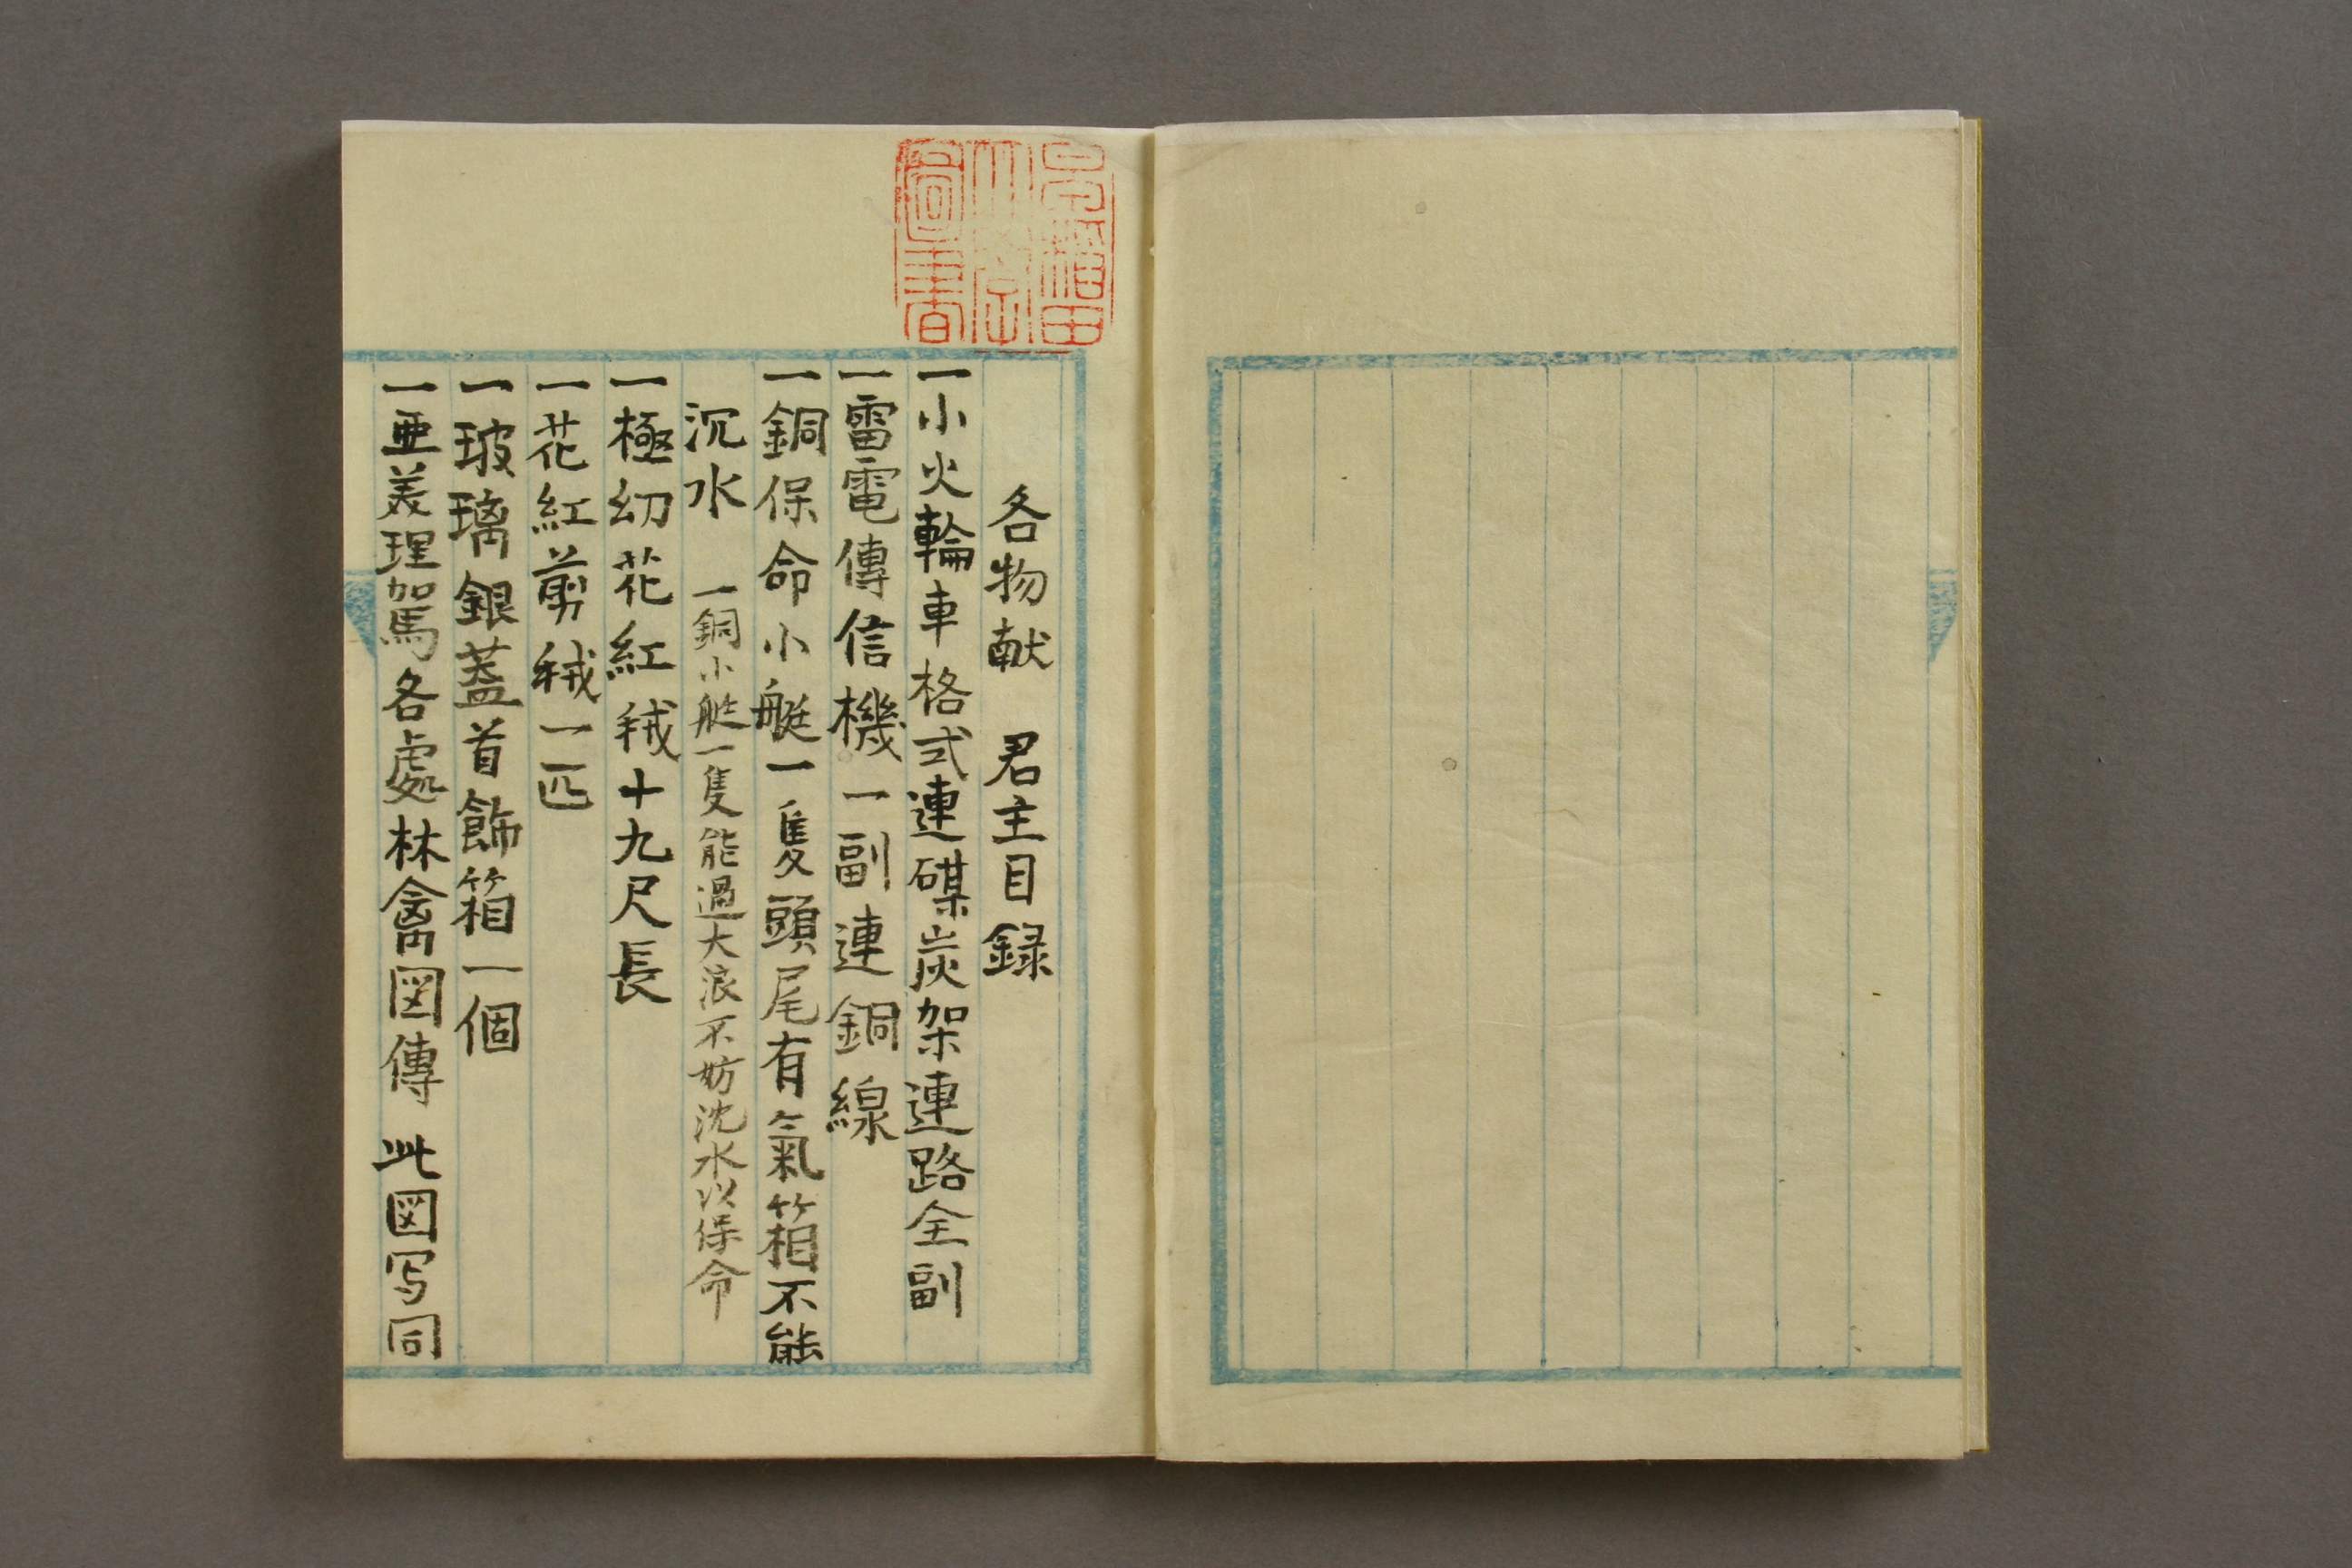 各物献　君主目録
一小火輪車格式連磔炭架連路全副
一雷電傳信機一副連銅線
一銅保命小艇一隻頭尾有氣箱不能
沉水　一銅小艇一隻能過大浪不妨沈水以保命
一極幼花紅絨十九尺長
一花紅剪絨一匹
一玻璃銀蓋首飾箱一個
一亜美理駕各處林禽図傳　此図写同
図書